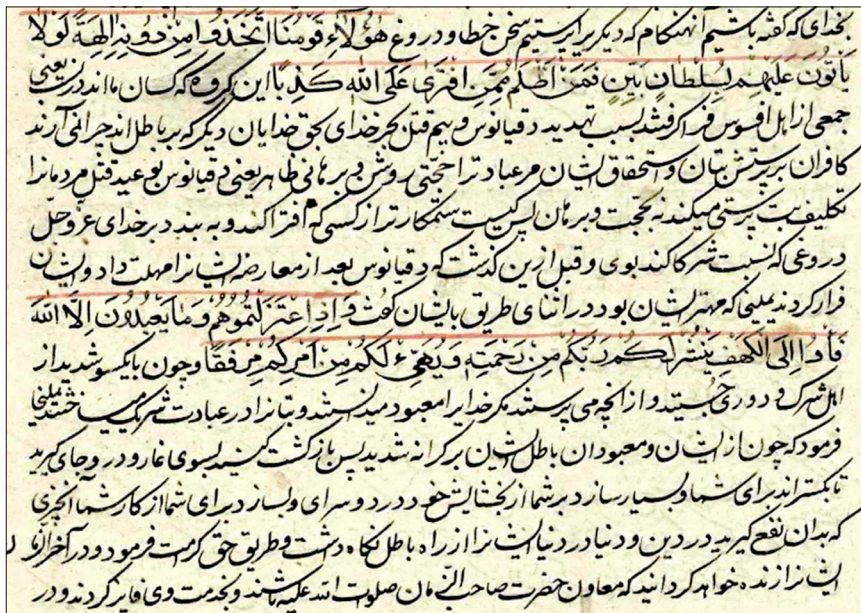 بخدای که گفته باشیم آنهنگام که دیگریرا پرستیم سخن خطا و دروغ هٰؤُلَآءِ قَوْمُنَا اتَّخَذُوا مِنْ دُونِهِ اٰلِهَةً لَوْلَا
یَأْتُونَ عَلَیْهِمْ بِسُلْطَانٍ بَیِّنٍ فَمَنْ اَظْلَمُ مِمَّنِ افْتَرٰی عَلَی اللهِ کَذِبًا این کروه که کسان مااند در نسب یعنی
جمعی از اهل افسوس فرا کرفتند بسبب تهدید دقیانوس و بیم قتل بجز خدای بحق خدایان دیگر که بر باطل اند چرا نمی آرند
کافران بر پرستش بتان و استحقاق ایشان مر عبادت را حجتی روشن و برهانی ظاهر یعنی دقیانوس بوعید قتل مردمانرا
تکلیف بت پرستی میکند نه بحجت و برهان پس کیست ستمکارتر از کسی که افترا کند و به بندد بر خدای عز و جل
دروغی که نسبت شرکا کند بوی و قبل ازین کذشت که دقیانوس بعد از معارضه ایشانرا مهلت داد و ایشان
فرار کردند یملیخا که مهتر ایشان بود در اثنای طریق بایشان کفت وَاِذِ اعْتَزَلْتُمُوهُمْ وَمَا یَعْبُدُونَ اِلَّا اللهَ
فَأْوُا اِلَی الْکَهْفِ یَنْشُرْ لَکُمْ رَبُّکُمْ مِنْ رَحْمَتِهِ وَیُهَیِّئْ لَکُمْ مِنْ اَمْرِکُمْ مِرْفَقًا و چون بایکسو شدید از
اهل شرک و دوری جستید و از انچه می پرستند مکر خدایرا معبود میدانستند و بتانرا در عبادت شریک میساختند یملیخا
فرمود که چون از ایشان و معبودان باطل ایشان بر کرانه شدید پس باز کشت کنید بسوی غار و درو جای کیرید
تا بکستراند برای شما و بسیار سازد بر شما از بخشایش خود در دو سرای و بسازد برای شما از کار شما آنچیزی
که بدان نفع کیرید در دین و دنیا در دنیا ایشانرا از راه باطل نکاه داشت و طریق حق کرامت فرمود و در آخر
ایشانرا زنده خواهد کردانید که معاون حضرت صاحب الزمان صلوات الله علیه باشند و بخدمت وی فایز کردند و در